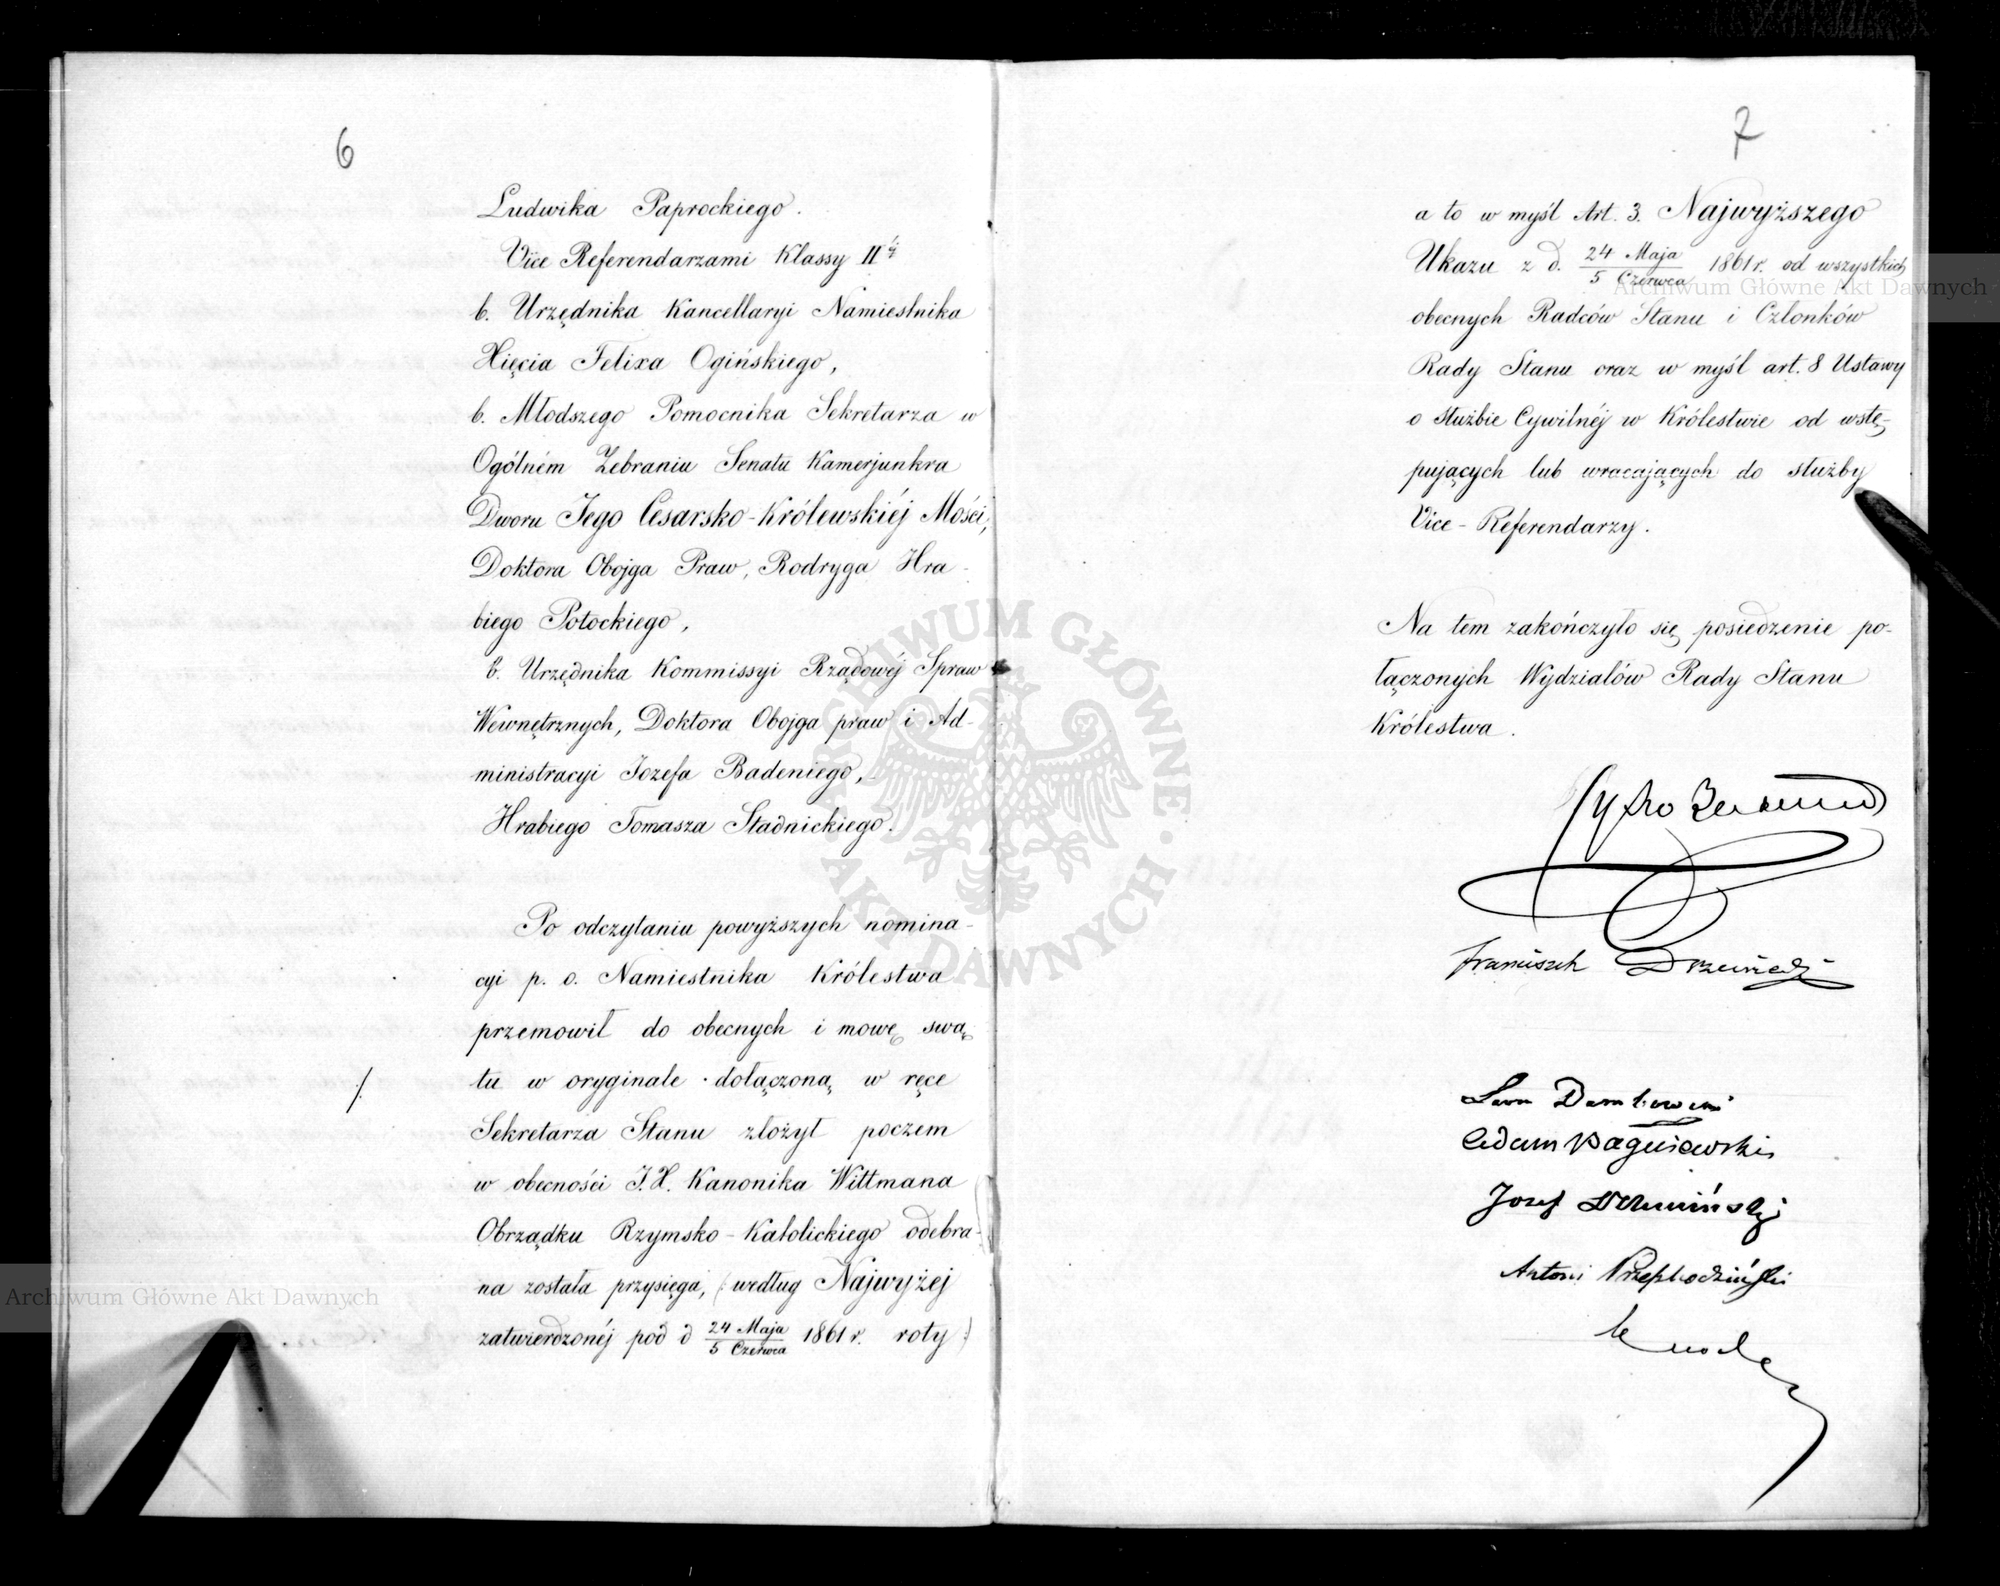 6
Ludwika Paprockiego.
Vice Referendarzami Klassy IIéj
b. Urzędnika Kancellaryi Namiestnika
Xięcia Felixa Ogińskiego,
b. Młodszego Pomocnika Sekretarza w
Ogólném Zebraniu Senatu Kamerjunkra
Dworu Jego Cesarsko-Królewskiéj Mości,
Doktora Obojga Praw, Rodryga Hra-
biego Potockiego,
b. Urzędnika Kommissyi Rządowéj Spraw
Wewnętrznych, Doktora Obojga praw i Ad-
ministracyi Jozefa Badeniego,
Hrabiego Tomasza Stadnickiego.
Po odczytaniu powyższych nomina-
cyi p. o. Namiestnika Królestwa
przemowił do obecnych i mowę swą
tu w oryginale dołączoną w ręce
Sekretarza Stanu złożył poczem
w obecności J.X. Kanonika Wittmana
Obrządku Rzymsko-Katolickiego odebra-
na została przysięga, (według Najwyżej
zatwierdzonéj pod d 24 Maja / 5 Czerwca 1861 r. roty)
7
a to w myśl Art. 3. Najwyższego
Ukazu z d. 24 Maja / 5 Czerwca 1861 r. od wszystkich
obecnych Radców Stanu i Członków
Rady Stanu oraz w myśl art. 8 Ustawy
o służbie Cywilnéj w Królestwie od wstę-
pujących lub wracających do służby
Vice-Referendarzy.
Na tem zakończyło się posiedzenie po-
łączonych Wydziałów Rady Stanu
Królestwa.
Franciszek
Leon Dembowski
Adam Bagniewski
Józef
Antoni Przephodziński
Archiwum Główne Akt Dawnych
Archiwum Główne Akt Dawnych
ARCHIWUM GŁÓWNE AKT DAWNYCH